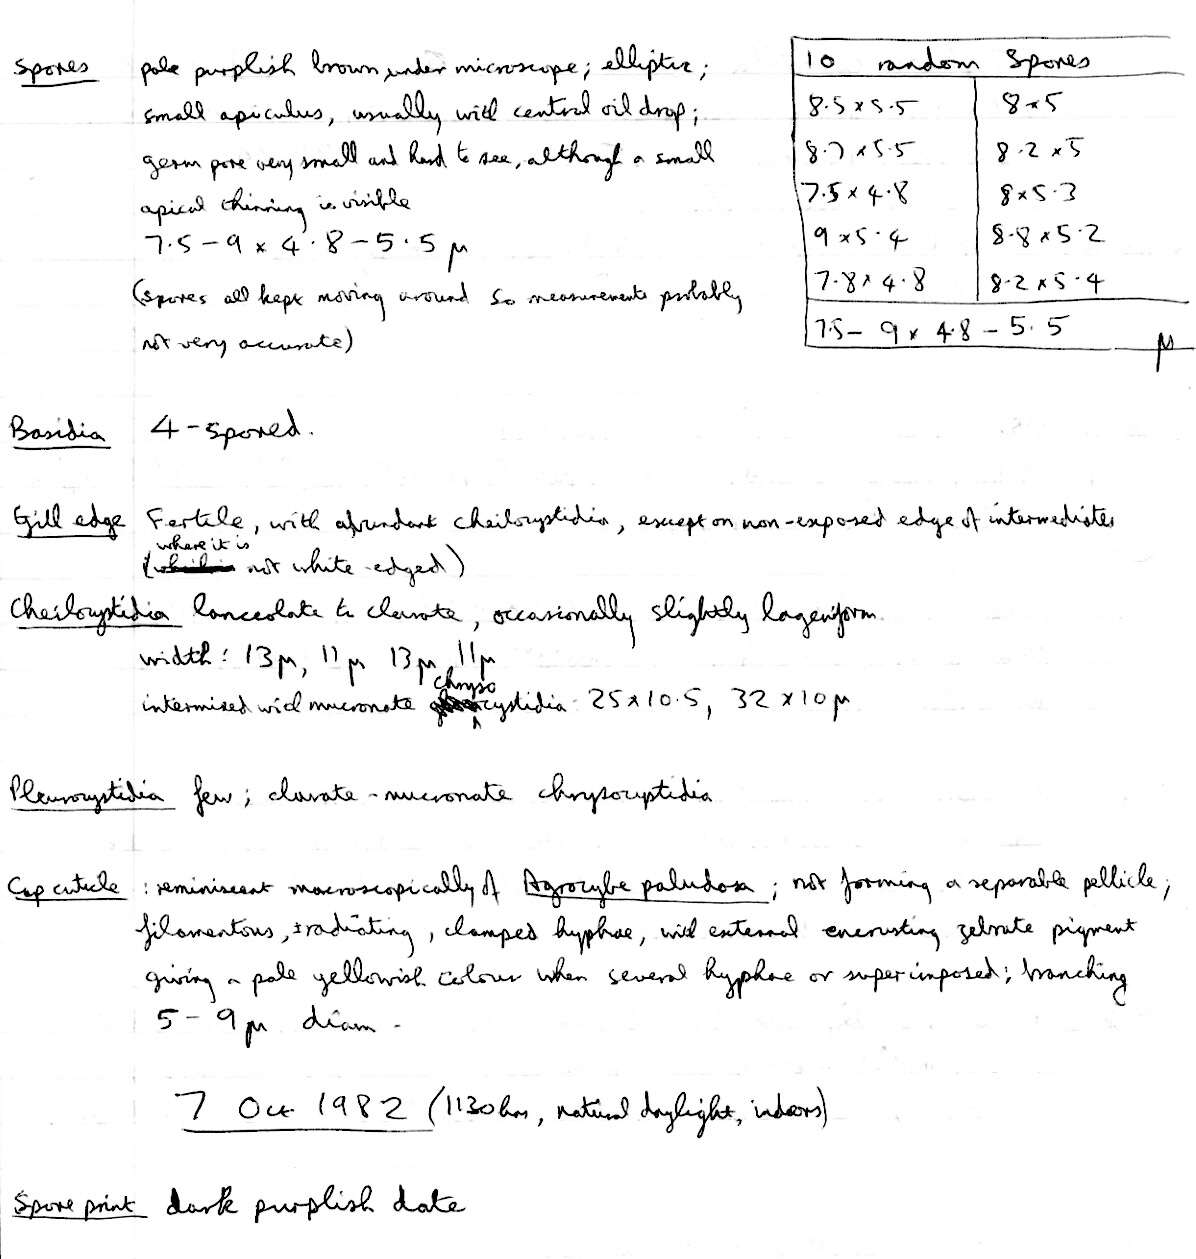 Spores pale purplish brown under microscope; elliptic;
small apiculus, usually with central oil drop;
germ pore very small and hard to see, although a small
apical thinning is visible
7.5 – 9 × 4.8 – 5.5 µ
(spores all kept moving around so measurements probably
not very accurate)
10 random Spores
8.5 × 5.5 8 × 5
8.7 × 5.5 8.2 × 5
7.5 × 4.8 8 × 5.3
9 × 5.4 8.8 × 5.2
7.8 × 4.8 8.2 × 5.4
7.5 – 9 × 4.8 – 5.5 µ
Basidia 4-spored.
Gill edge Fertile, with abundant cheilocystidia, except on non-exposed edge of intermediates
(where it is not white-edged)
Cheilocystidia lanceolate to clavate, occasionally slightly lageniform.
width: 13µ, 11µ 13µ, 11µ
intermixed with mucronate chrysocystidia 25 × 10.5, 32 × 10µ
Pleurocystidia few; clavate-mucronate chrysocystidia
Cap cuticle : reminiscent macroscopically of Agrocybe paludosa; not forming a separable pellicle;
filamentous, ± radiating, clamped hyphae, with external encrusting zebrate pigment
giving a pale yellowish colour when several hyphae or superimposed; branching
5 – 9µ diam.
7 Oct 1982 (1130 hrs, natural daylight, indoors)
Spore print dark purplish date